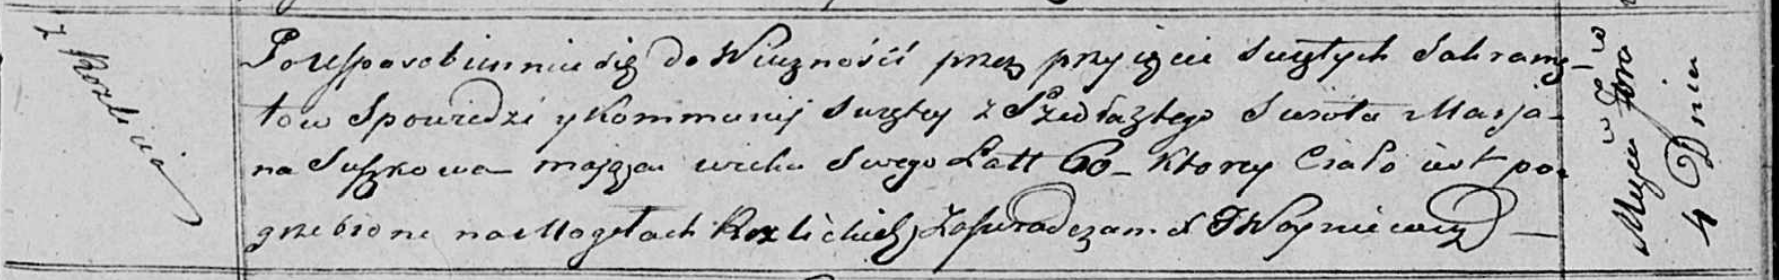 z Rozlicia
Po usposobienniu się do Wieczności przez przyięcie Swiętych Sakramę-
tow Spowiedzi y Kommunij Swiętey z Szedł z tego Swiata Marja-
na Suszkowa mająca wieku Swego Latt 60 - ktorey Ciało iest po-
grzebione na Mogełach Rozlickich, Zaswiadczam X J Woyniewicz
Mięsca
4 Dnia